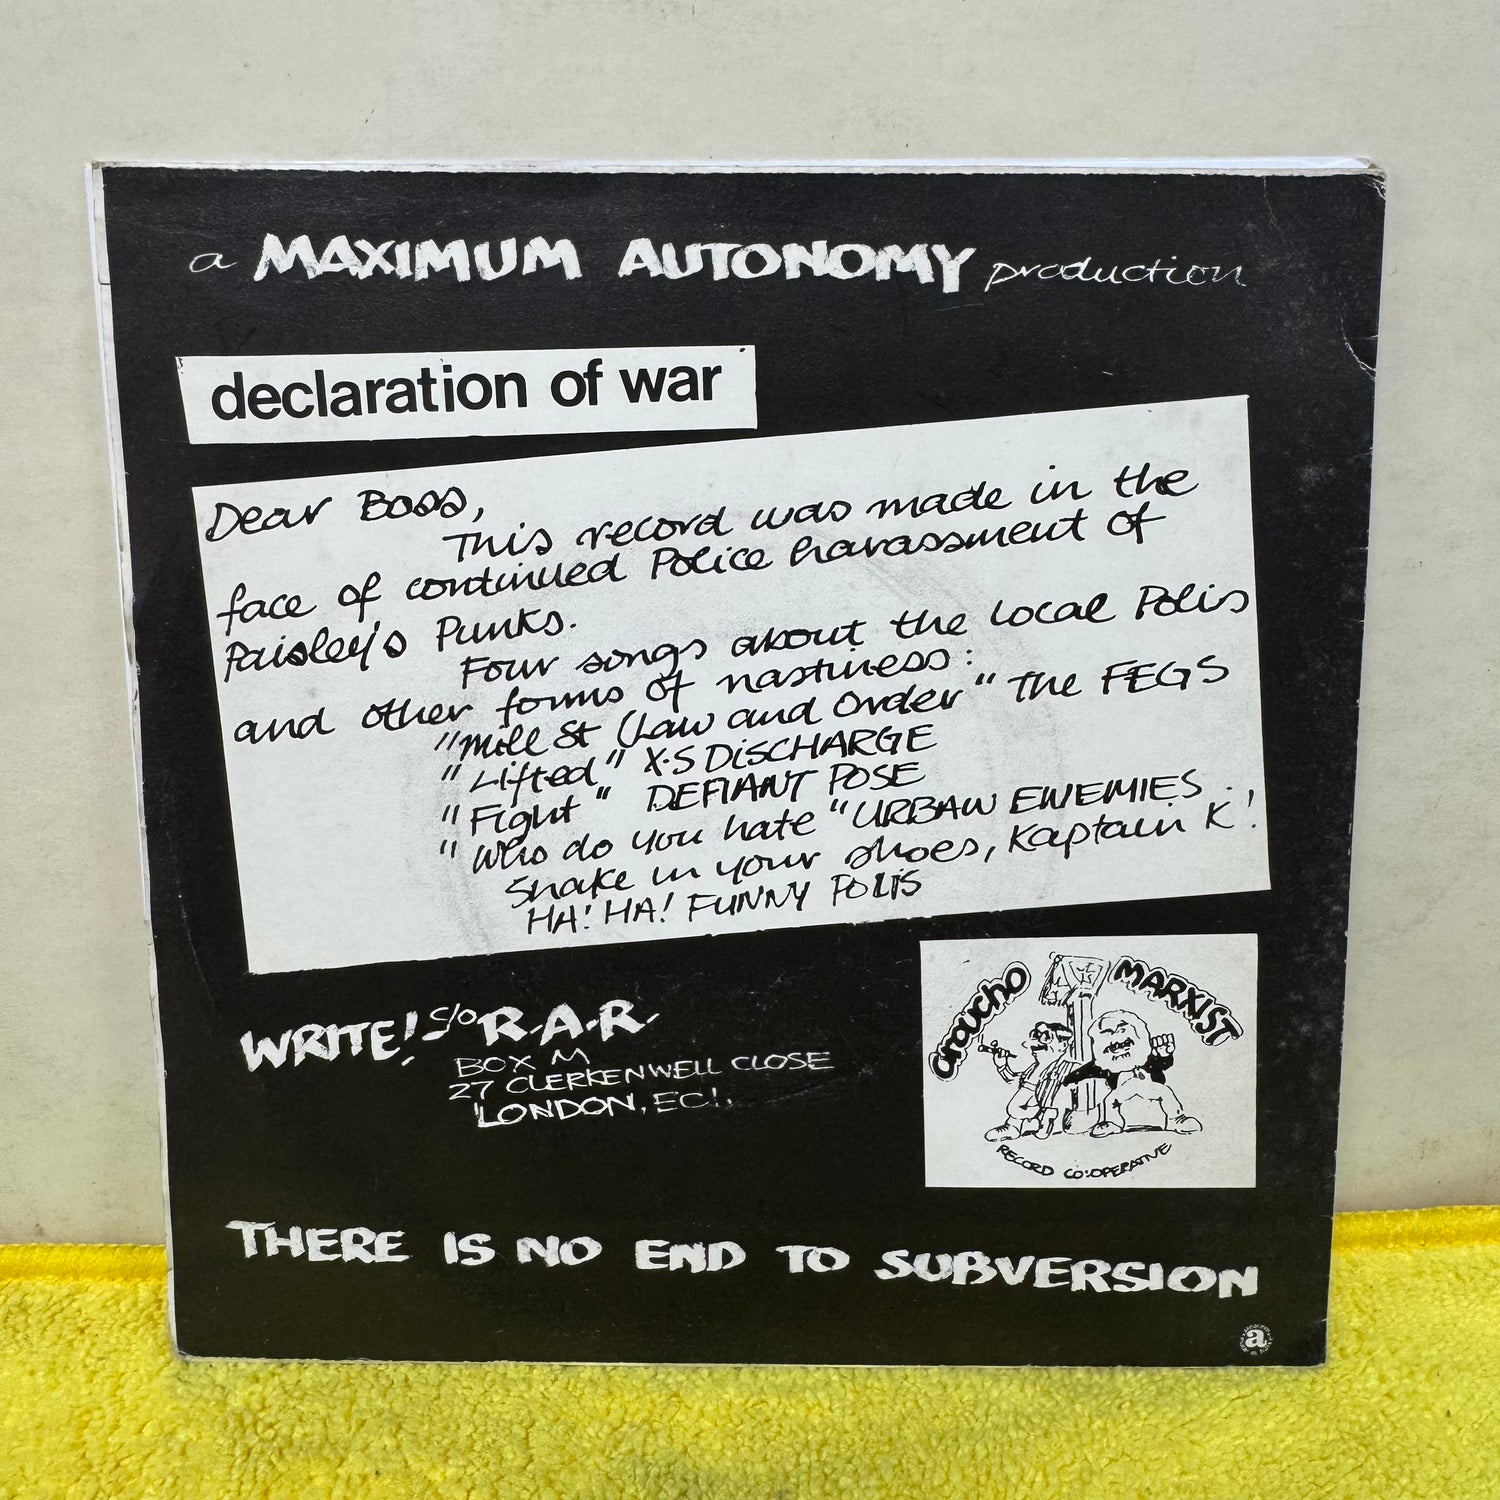 a MAXIMUM AUTONOMY production
declaration of war
Dear Boss,
This record was made in the
face of continued Police harassment of
Paisley's Punks.
Four songs about the local Polis
and other forms of nastiness:
"Mill St (Law and Order" The FEGS
"Lifted" X.S DISCHARGE
"Fight" DEFIANT POSE
"Who do you hate" URBAN ENEMIES
Shake in your shoes, Kaptain K!
HA! HA! FUNNY POLIS
WRITE! c/o R.A.R.
BOX M
27 CLERKENWELL CLOSE
LONDON, EC1.
Groucho MARXIST
RECORD CO:OPERATIVE
THERE IS NO END TO SUBVERSION
a